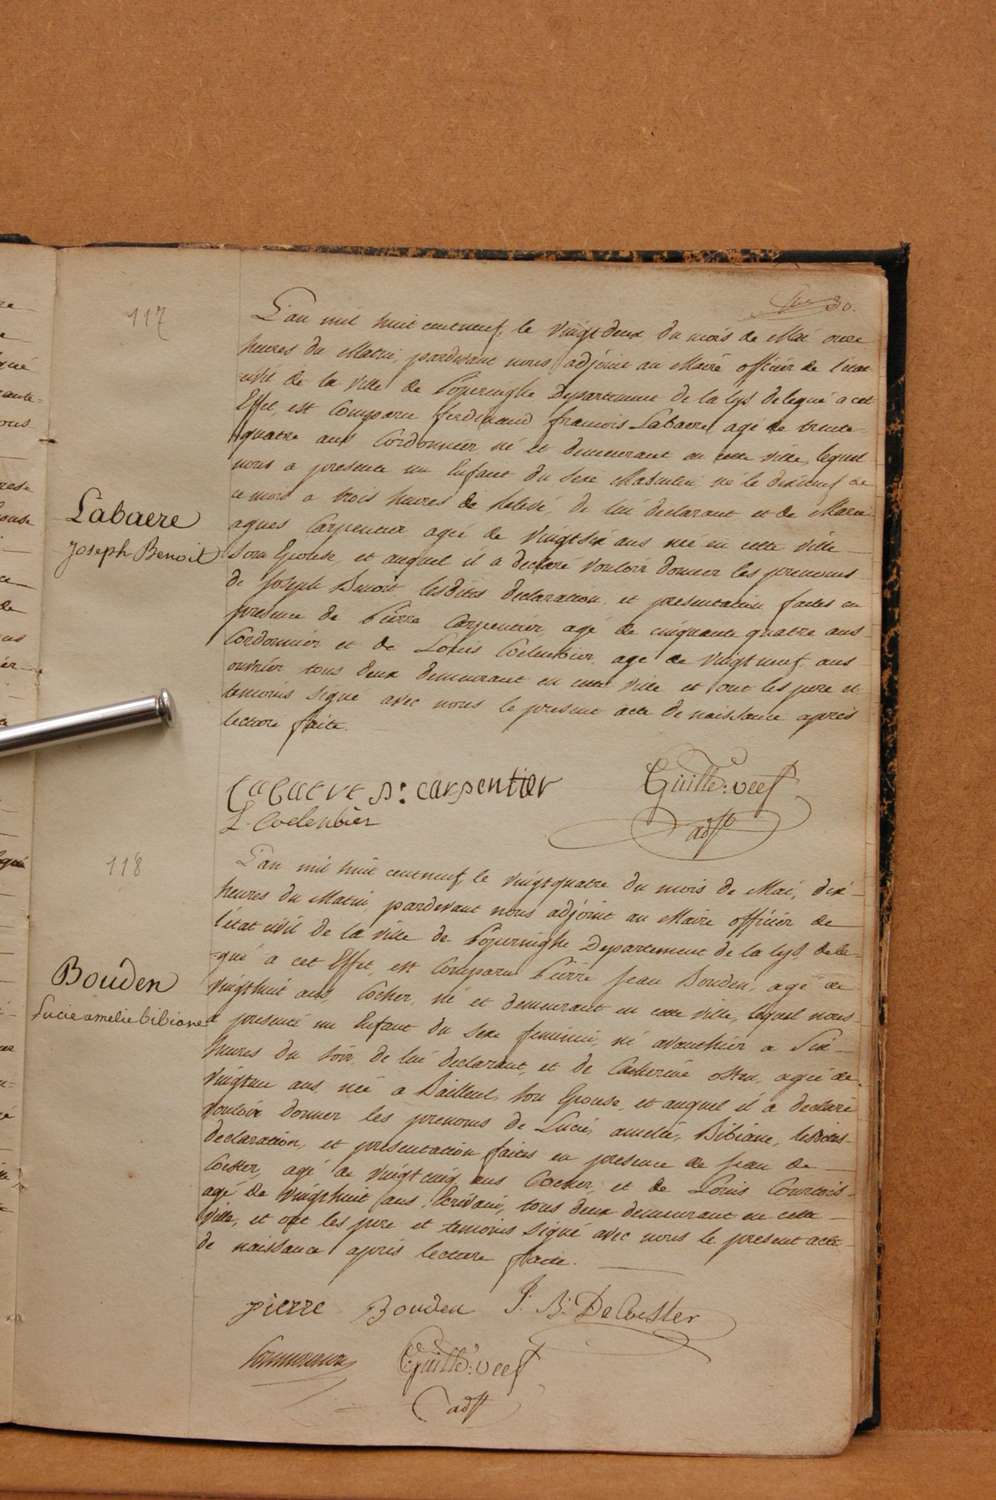 30.
117
L'an mil huit cent neuf, le vingt deux du mois de Mai onze
heures du Matin, pardevant nous adjoint au Maire officier de l'etat
civil de la ville de Poperinghe Departement de la Lys delegué a cet
Effet, est Comparu ferdinand francois Labaere, agé de trente
quatre ans Cordonnier, né et demeurant en cette ville, lequel
nous a presenté un Enfant du sexe Masculin, né le dixneuf de
ce mois a trois heures de Relevé, de lui declarant et de Marie
agnes Carpentier agée de vingt six ans née en cette ville
Son Epouse, et auquel il a declaré vouloir donner les prenoms
de Joseph Benoit lesdites declaration, et presentation faites en
presence de Pierre Carpentier, agé de cinquante quatre ans
Cordonnier et de Louis Coelenbier, agé de vingt neuf ans
ouvrier tous deux demeurant en cette ville et ont les pere et
temoins signé avec nous le present acte de naissance après
lecture faite.
Labaere
Joseph Benoit
Labaere P: carpentier
L. Coelenbier
Guille: veef
adjt
118
L'an mil huit cent neuf, le vingt quatre du mois de Mai, dix
heures du Matin, pardevant nous adjoint au Maire officier de
l'etat civil de la ville de Poperinghe Departement de la Lys dele-
gué a cet Effet, est Comparu Pierre Jean Bouden, agé de
vingthuit ans, Cocher, né et demeurant en cette ville, lequel nous
a presenté un Enfant du sexe feminin, né avanthier a Six
heures du Soir, de lui declarant, et de Catherine agée de
ans née a Bailleul, Son Epouse, et auquel il a declaré
vouloir donner les prenoms de Lucie, amelie, Bibiane, lesdites
declaration, et presentation faites en presence de Jean de
Coster, agé de vingt cinq ans Cocher, et de Louis
agé de vingthuit ans, Ecrivain, tous deux demeurant en cette
ville, et ont les pere et temoins signé avec nous le present acte
de naissance après lecture faite.
Bouden
Lucie amelie bibiane
pierre Bouden J. B. DeCoster
Guille: veef
adjt